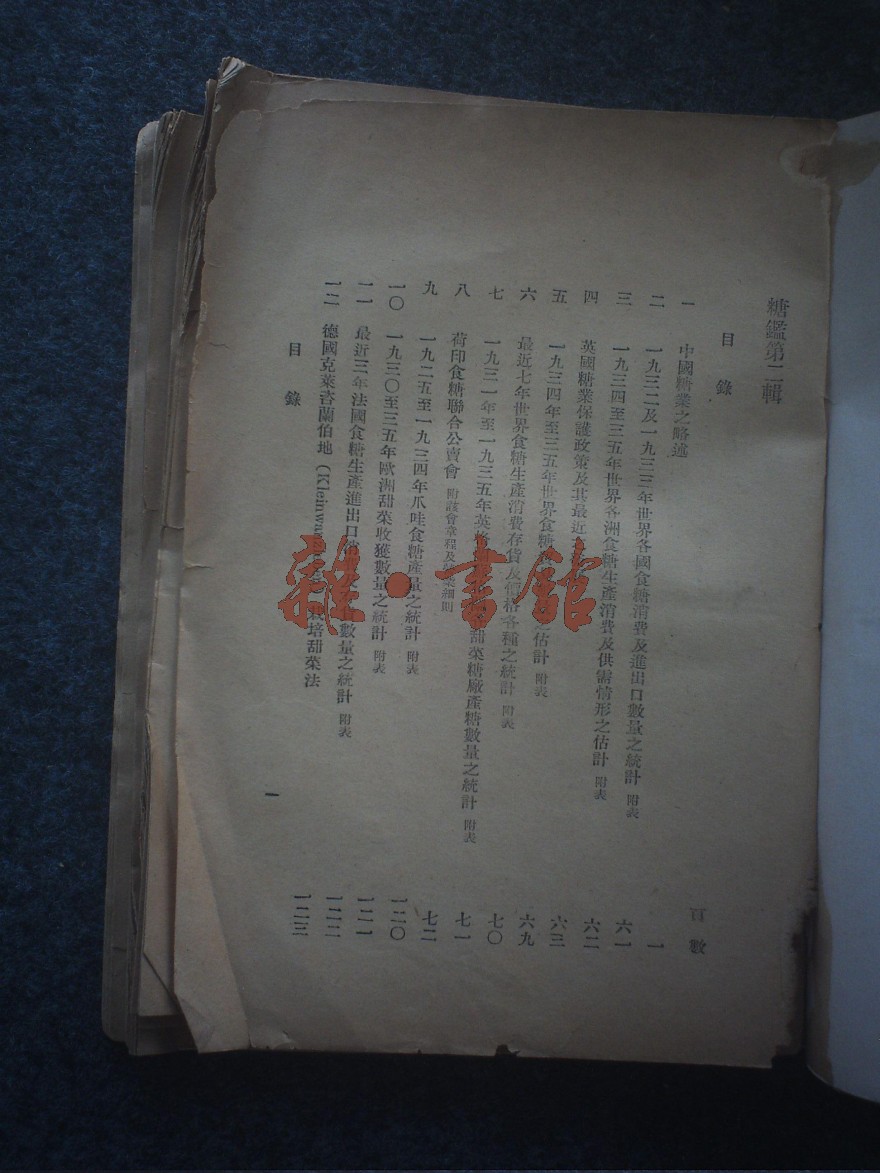 糖鑑第二輯
目錄
頁數
一 中國糖業之略述 一
二 一九三二及一九三三年世界各國食糖消費及進出口數量之統計 附表 六一
三 一九三四至三五年世界各洲食糖生產消費及供需情形之估計 附表 六二
四 英國糖業保護政策及其最近 六三
五 一九三四年至三五年世界食糖 之估計 附表 六九
六 最近七年世界食糖生產消費存貨及價格各種之統計 附表 七〇
七 一九二一年至一九三五年英 甜菜糖廠產糖數量之統計 附表 七一
八 荷印食糖聯合公賣會 附該會章程及 細則 七二
九 一九二五至一九三四年爪哇食糖產量之統計 附表 一二〇
一〇 一九三〇至三五年歐洲甜菜收獲數量之統計 附表 一二一
一一 最近三年法國食糖生產進出口 數量之統計 附表 一二二
一二 德國克萊咨蘭伯地 栽培甜菜法 一二三
目錄
一
雜·書館